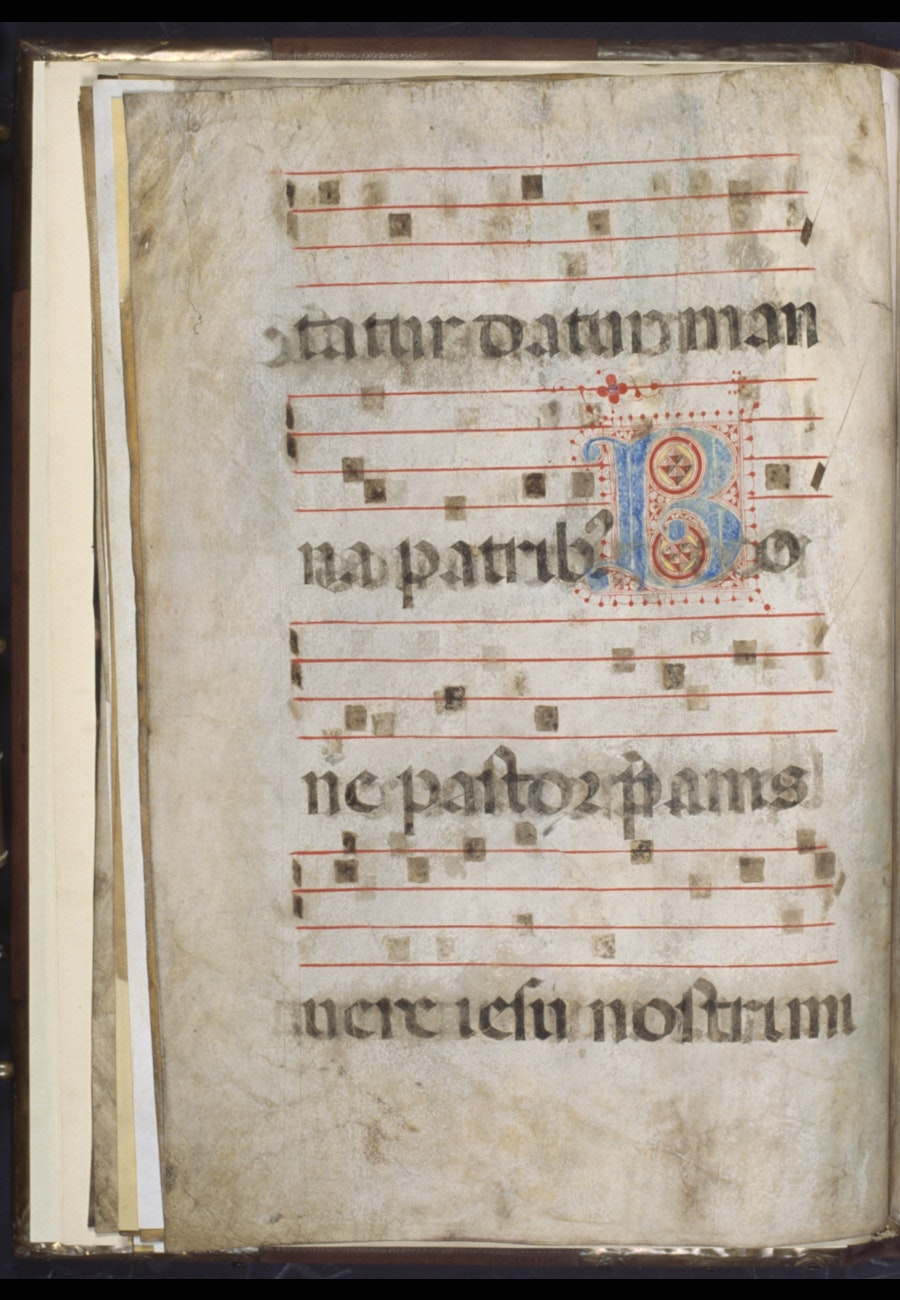 tatur datur man
na patrib⁹ Bo
ne pastor p̄anis
uere iesu nostrum